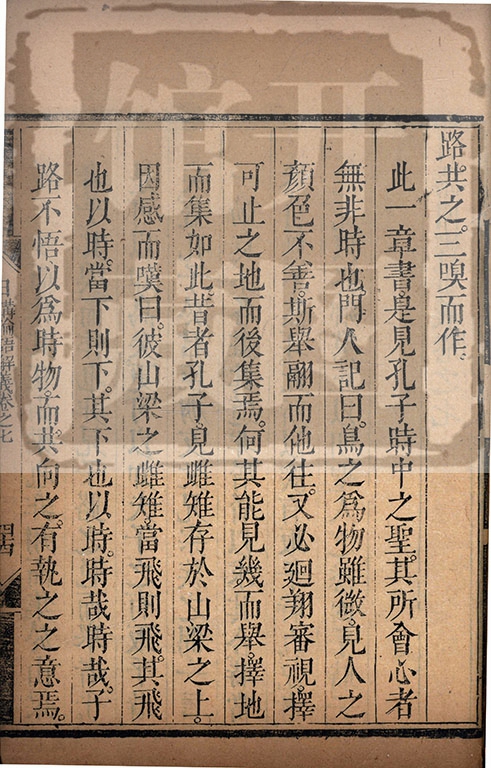 路共之三嗅而作
此一章書是見孔子時中之聖其所會心者
無非時也門人記曰鳥之爲物雖微見人之
顏色不善斯舉翮而他往又必迴翔審視擇
可止之地而後集焉何其能見幾而舉擇地
而集如此昔者孔子見雌雉存於山梁之上
因感而嘆曰彼山梁之雌雉當飛則飛其飛
也以時當下則下其下也以時時哉時哉子
路不悟以爲時物而共向之有執之之意焉
日講論語解義卷之七